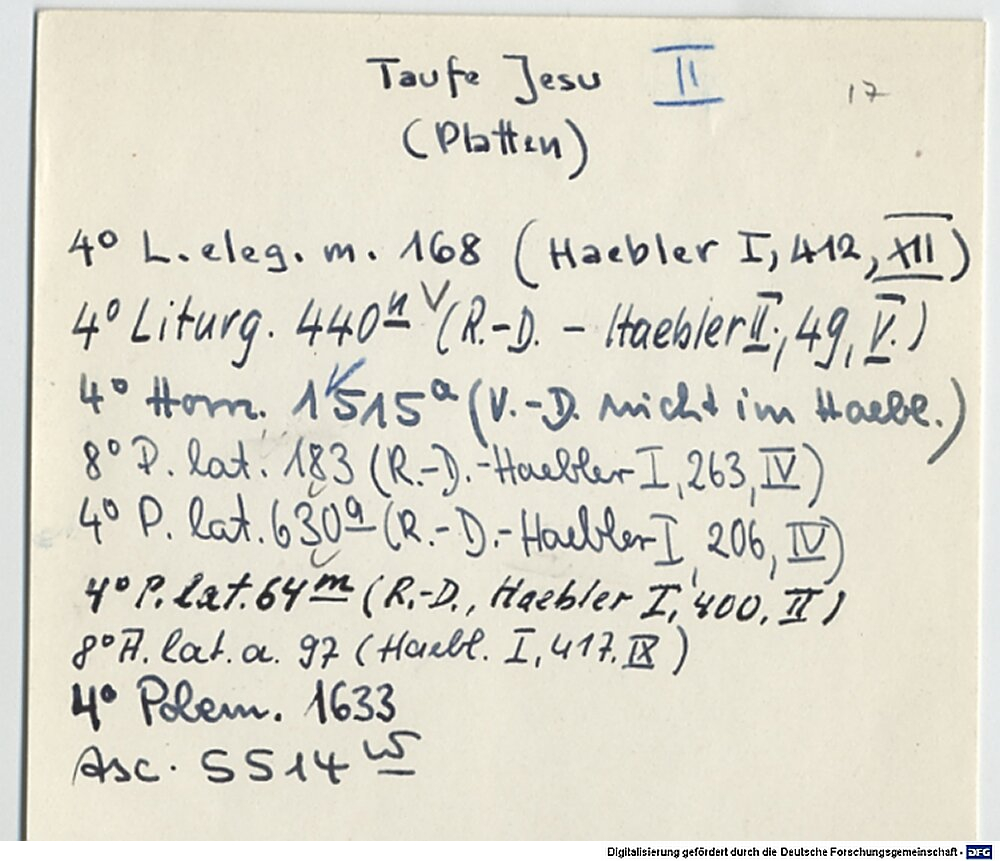 Taufe Jesu II 17
(Platten)
4° L. eleg. m. 168 (Haebler I, 412, XII)
4° Liturg. 440n (R.-D. - Haebler II, 49, V.)
4° Hom. 1515a (V.-D. nicht im Haebl.)
8° P. lat. 183 (R.-D.-Haebler I, 263, IV)
4° P. lat. 630q (R.-D.-Haebler I, 206, IV)
4° P. lat. 64m (R.-D., Haebler I, 400, II)
8° A. lat. a. 97 (Haebl. I, 417, IX)
4° Polem. 1633
Asc. 5514w
Digitalisierung gefördert durch die Deutsche Forschungsgemeinschaft - DFG